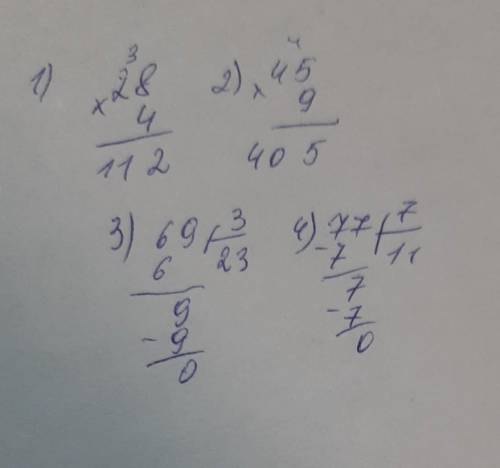 3 4
1) 28 2) 45
× 4 × 9
112 405
3) 69 3 4) 77 7
6 23 - 7 11
9 7
- 9 - 7
0 0